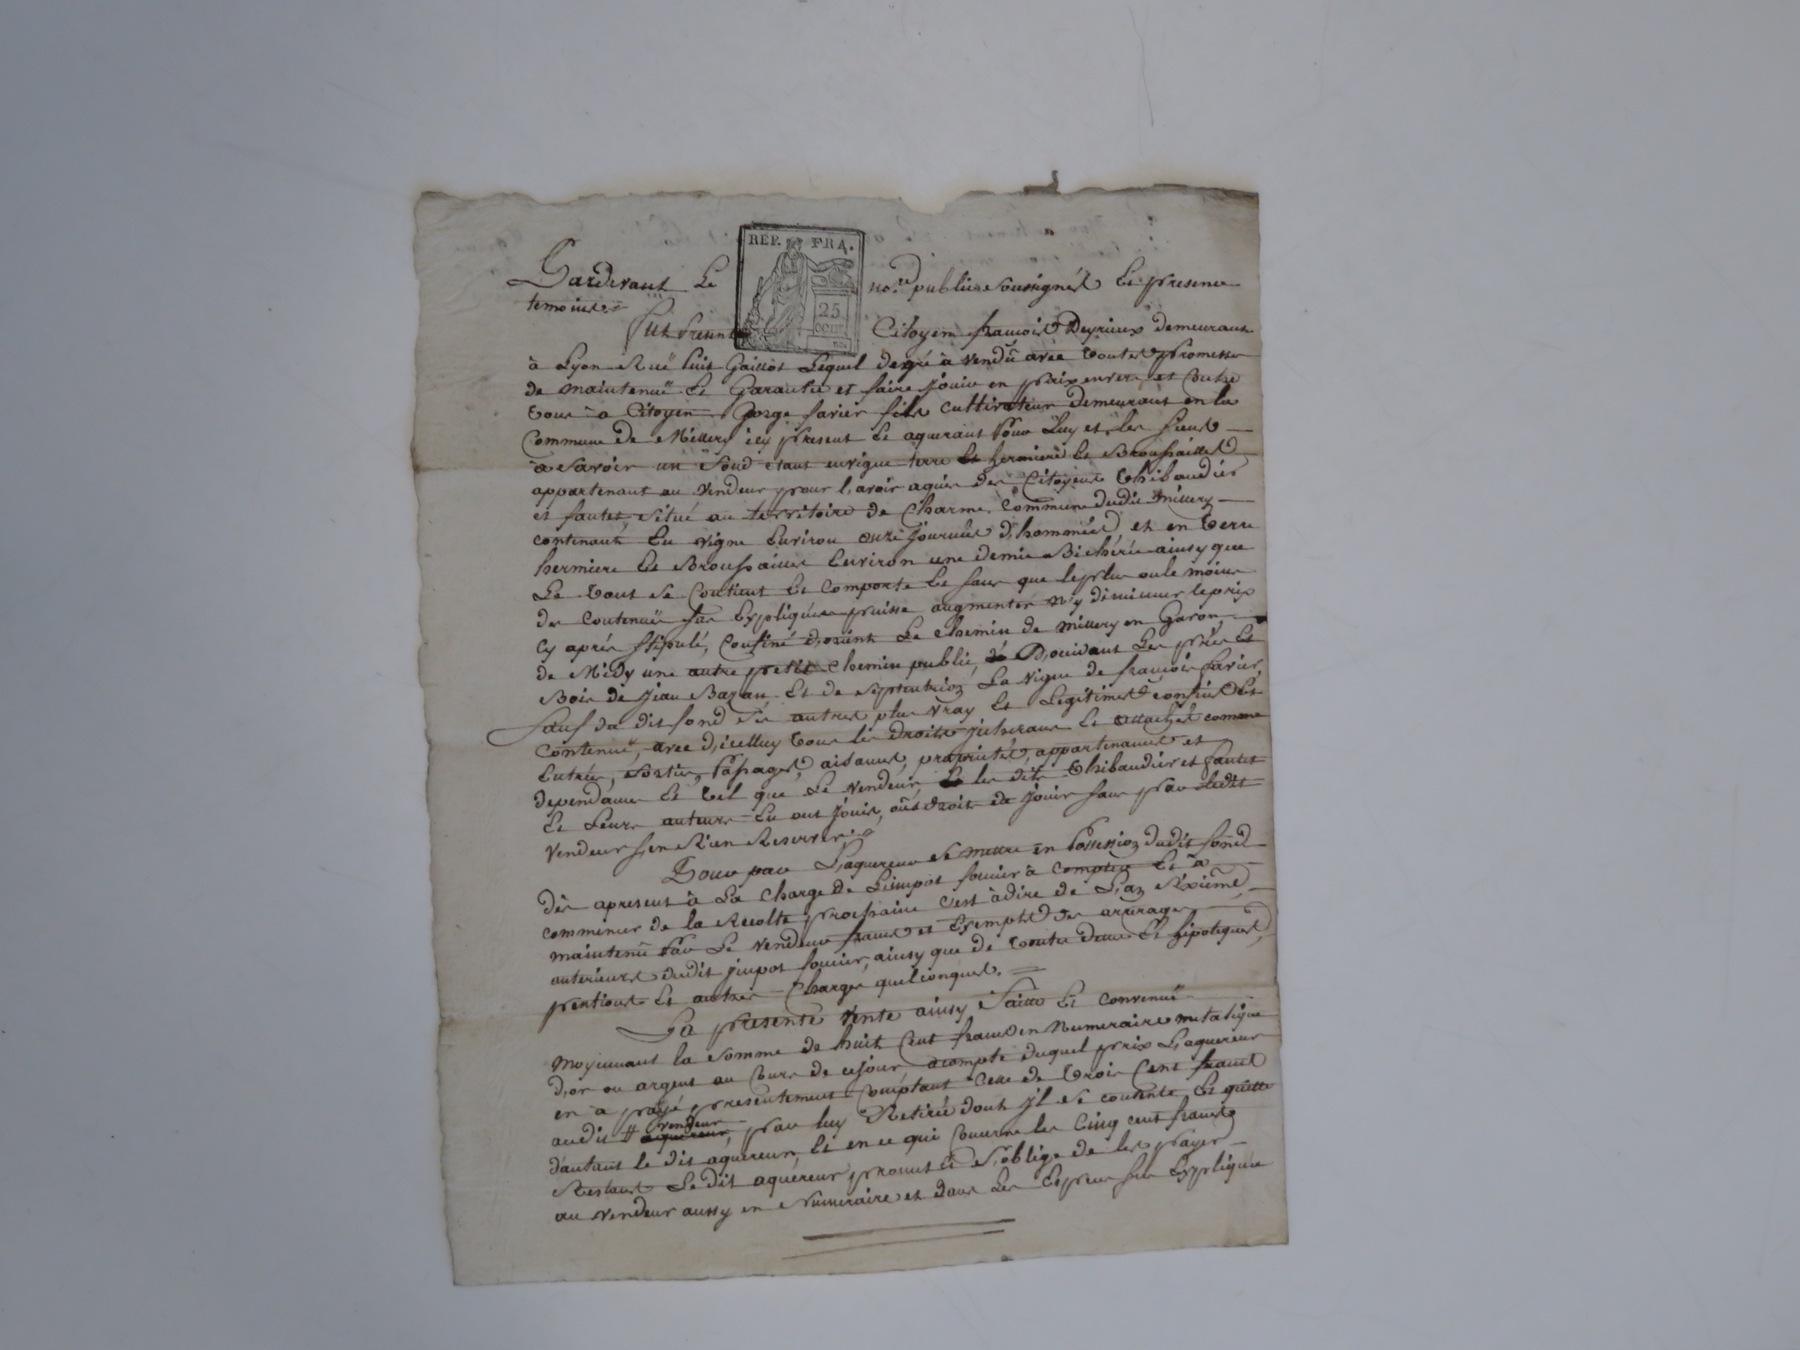 REP. FRA.
25
CENT
Pardevant Le no.re public Soussigné Et presence
temoins
fut present Citoyen francois Deyrieux demeurant
à Lyon Ruë puit Gaillot Lequel de gré à vendû avec toutes promesse
de maintenuë Et Garantie et faire jouir en paix envers et contre
tous à Citoyen George favier fils cultivateur demeurant en la
Commune de Millery icy present Et aquerant pour Luy et les siens
à Savoir un fond etant en vigne terre Et hermiere Et Broussailles
appartenant au vendeur pour l'avoir aquis des Citoyens Thibaudier
et fautet, situé au territoire de Charme, Commune dudit Millery
contenant En vigne Environ onze journées d'hommées et en terre
hermiere Et Broussailles Environ une demie Bicherée ainsy que
Le tout se Contient Et Comporte Et sans que le plus ou le moins
des Contenuës sus Expliquées puisse augmenter n'y diminuer le prix
Cy après stipulé, Confiné d'orient Le Chemin de Millery en Garon,
de Midy une autre petit Chemin public, d'occident Les prés Et
Bois de Jean Bazan Et de Septentrion La vigne de francois favier
Sauf du dit fond ses autres plus vray Et Legitimes Confins Et
Contenuë, avec d'icelluy tous les droits jnherans Et attachés comme
Entrées, Sorties, passages, aisances, proprietés, appartenances et
dependances Et tel que Le vendeur, Et les dits Thibaudier et fautet
Et Leurs auteurs En ont jouis, ou droit de jouir sans par Ledit
vendeur s'en Rien Reserver.
Pour par L'aquereur se mettre en possession dudit fond
dès apresent à La Charge de L'impot foncier à compter Et à
commencer de la Recolte prochaine c'est à dire de L'an Sixiême,
maintenu par Le vendeur francs et Exempts des arrerages
anterieurs dudit jmpot foncier, ainsy que de toutes dettes Et hipoteques,
pentions Et autres Charges quelconques.
La presente vente ainsy faite Et Convenuë
moyennant la somme de huit Cent francs en Numeraire metalique
d'or ou argent au Cours de ce jour, acompte duquel prix L'aquereur
en a payé presentement Comptant Celle de trois Cent francs
audit vendeur aquereur, par luy Retirée dont jl se contente Et quitte
d'autant le dit aquereur, Et en ce qui Concerne les Cinq cent francs
Restant Le dit aquereur promet Et s'oblige de les payer
au vendeur aussy en Numeraire et dans Les Especes sus Expliquées